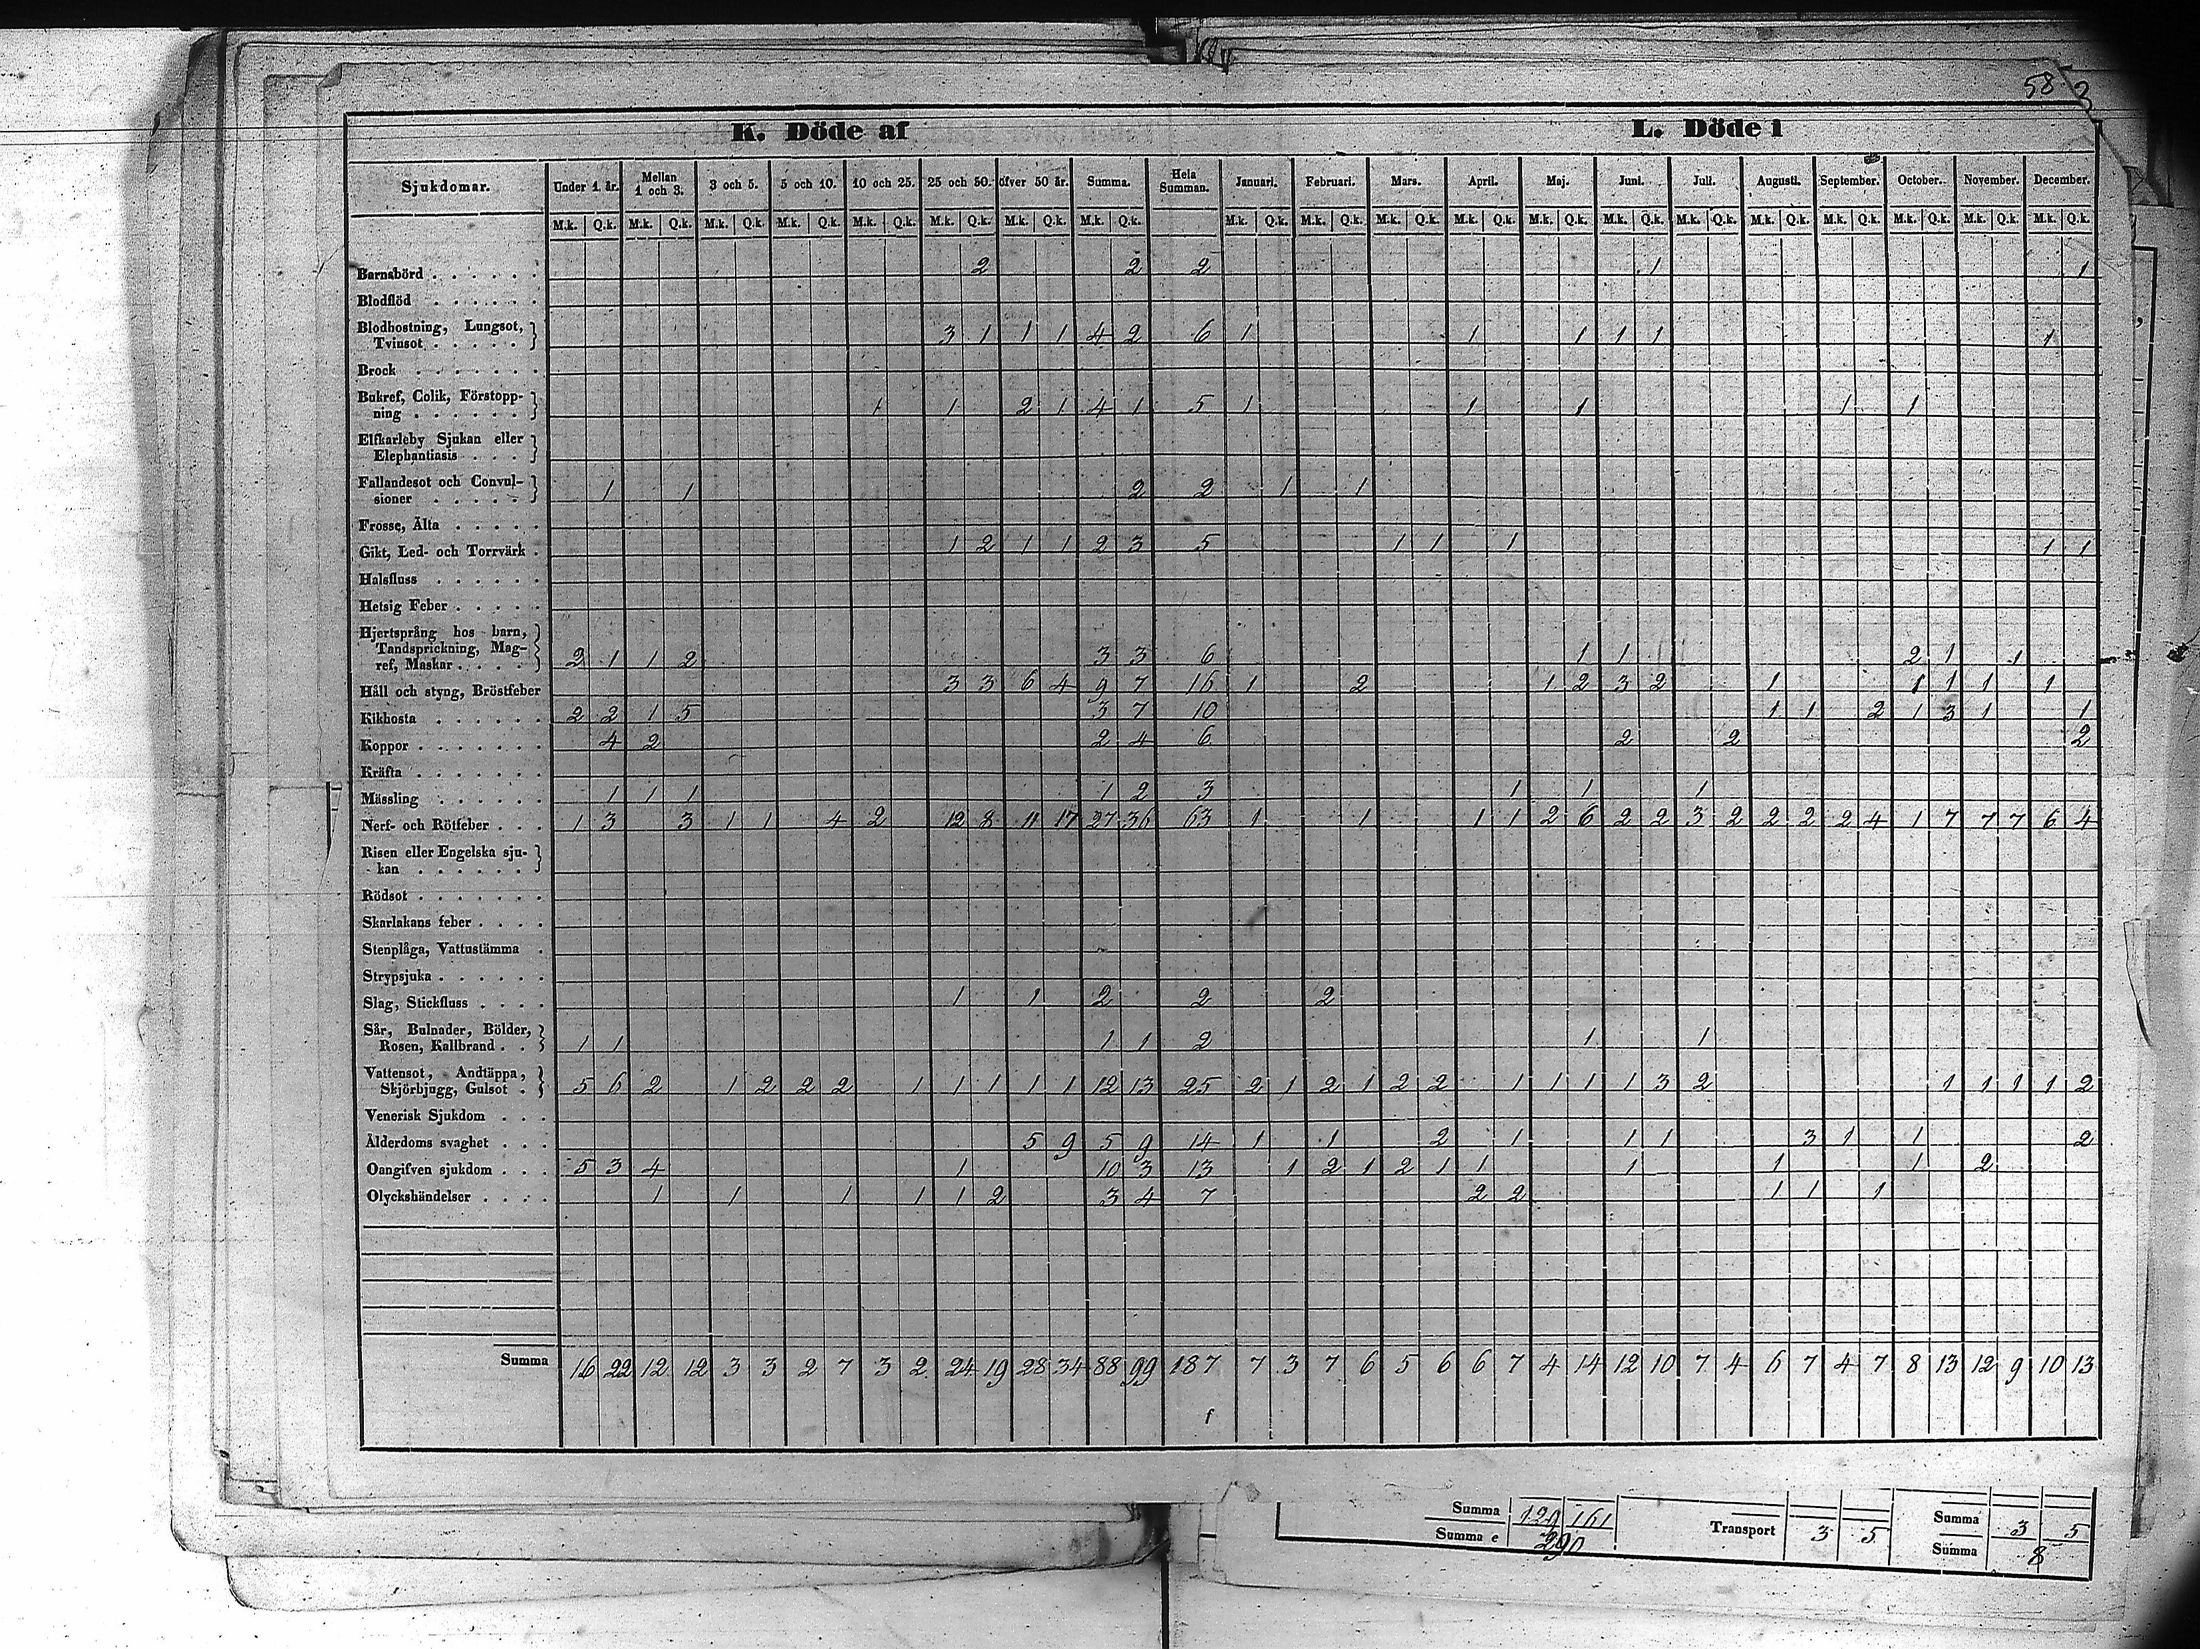 58
3
K. Döde af L. Döde i
Sjukdomar. Under 1. år. Mellan 1 och 3. 3 och 5. 5 och 10. 10 och 25. 25 och 50. öfver 50 år. Summa. Hela Summan. Januari. Februari. Mars. April. Maj. Juni. Juli. Augusti. September. October. November. December.
M.k. Q.k. M.k. Q.k. M.k. Q.k. M.k. Q.k. M.k. Q.k. M.k. Q.k. M.k. Q.k. M.k. Q.k. M.k. Q.k. M.k. Q.k. M.k. Q.k. M.k. Q.k. M.k. Q.k. M.k. Q.k. M.k. Q.k. M.k. Q.k. M.k. Q.k. M.k. Q.k. M.k. Q.k. M.k. Q.k.
Barnsbörd . . . . . . 2 2 2 1 1
Blodflöd . . . . . .
Blodhostning, Lungsot,
Tvinsot . . . . . 3 1 1 1 4 2 6 1 1 1 1 1 1
Brock . . . . . . .
Bukref, Colik, Förstopp-
ning . . . . . . 1 1 2 1 4 1 5 1 1 1 1 1
Elfkarleby Sjukan eller
Elephantiasis . . .
Fallandesot och Convul-
sioner . . . . . 1 1 2 2 1 1
Frosse, Älta . . . . .
Gikt, Led- och Torrvärk . 1 2 1 1 2 3 5 1 1 1 1 1
Halsfluss . . . . . .
Hetsig Feber . . . . .
Hjertsprång hos barn,
Tandsprickning, Mag-
ref, Maskar . . . . 2 1 1 2 3 3 6 1 1 2 1 1
Håll och styng, Bröstfeber 3 3 6 4 9 7 16 1 2 1 2 3 2 1 1 1 1 1
Kikhosta . . . . . . 2 2 1 5 3 7 10 1 1 2 1 3 1 1
Koppor . . . . . . . 4 2 2 4 6 2 2 2
Kräfta . . . . . . .
Mässling . . . . . . 1 1 1 1 2 3 1 1 1
Nerf- och Rötfeber . . . 1 3 3 1 1 4 2 12 8 11 17 27 36 63 1 1 1 1 2 6 2 2 3 2 2 2 2 4 1 7 7 7 6 4
Risen eller Engelska sju-
kan . . . . . .
Rödsot . . . . . . .
Skarlakans feber . . . .
Stenplåga, Vattustämma .
Strypsjuka . . . . . .
Slag, Stickfluss . . . . 1 1 2 2 2
Sår, Bulnader, Bölder,
Rosen, Kallbrand . . 1 1 1 1 2 1 1
Vattensot, Andtäppa,
Skjörbjugg, Gulsot . 5 6 2 1 2 2 2 1 1 1 1 1 12 13 25 2 1 2 1 2 2 1 1 1 1 3 2 1 1 1 1 2
Venerisk Sjukdom . . .
Ålderdoms svaghet . . . 5 9 5 9 14 1 1 2 1 1 1 3 1 1 2
Oangifven sjukdom . . . 5 3 4 1 10 3 13 1 2 1 2 1 1 1 1 1 2
Olyckshändelser . . . . 1 1 1 1 1 2 3 4 7 2 2 1 1 1
Summa 16 22 12 12 3 3 2 7 3 2 24 19 28 34 88 99 187 7 3 7 6 5 6 6 7 4 14 12 10 7 4 6 7 4 7 8 13 12 9 10 13
Summa 129 161 Transport 3 5 Summa 3 5
Summa e 290 Summa 8